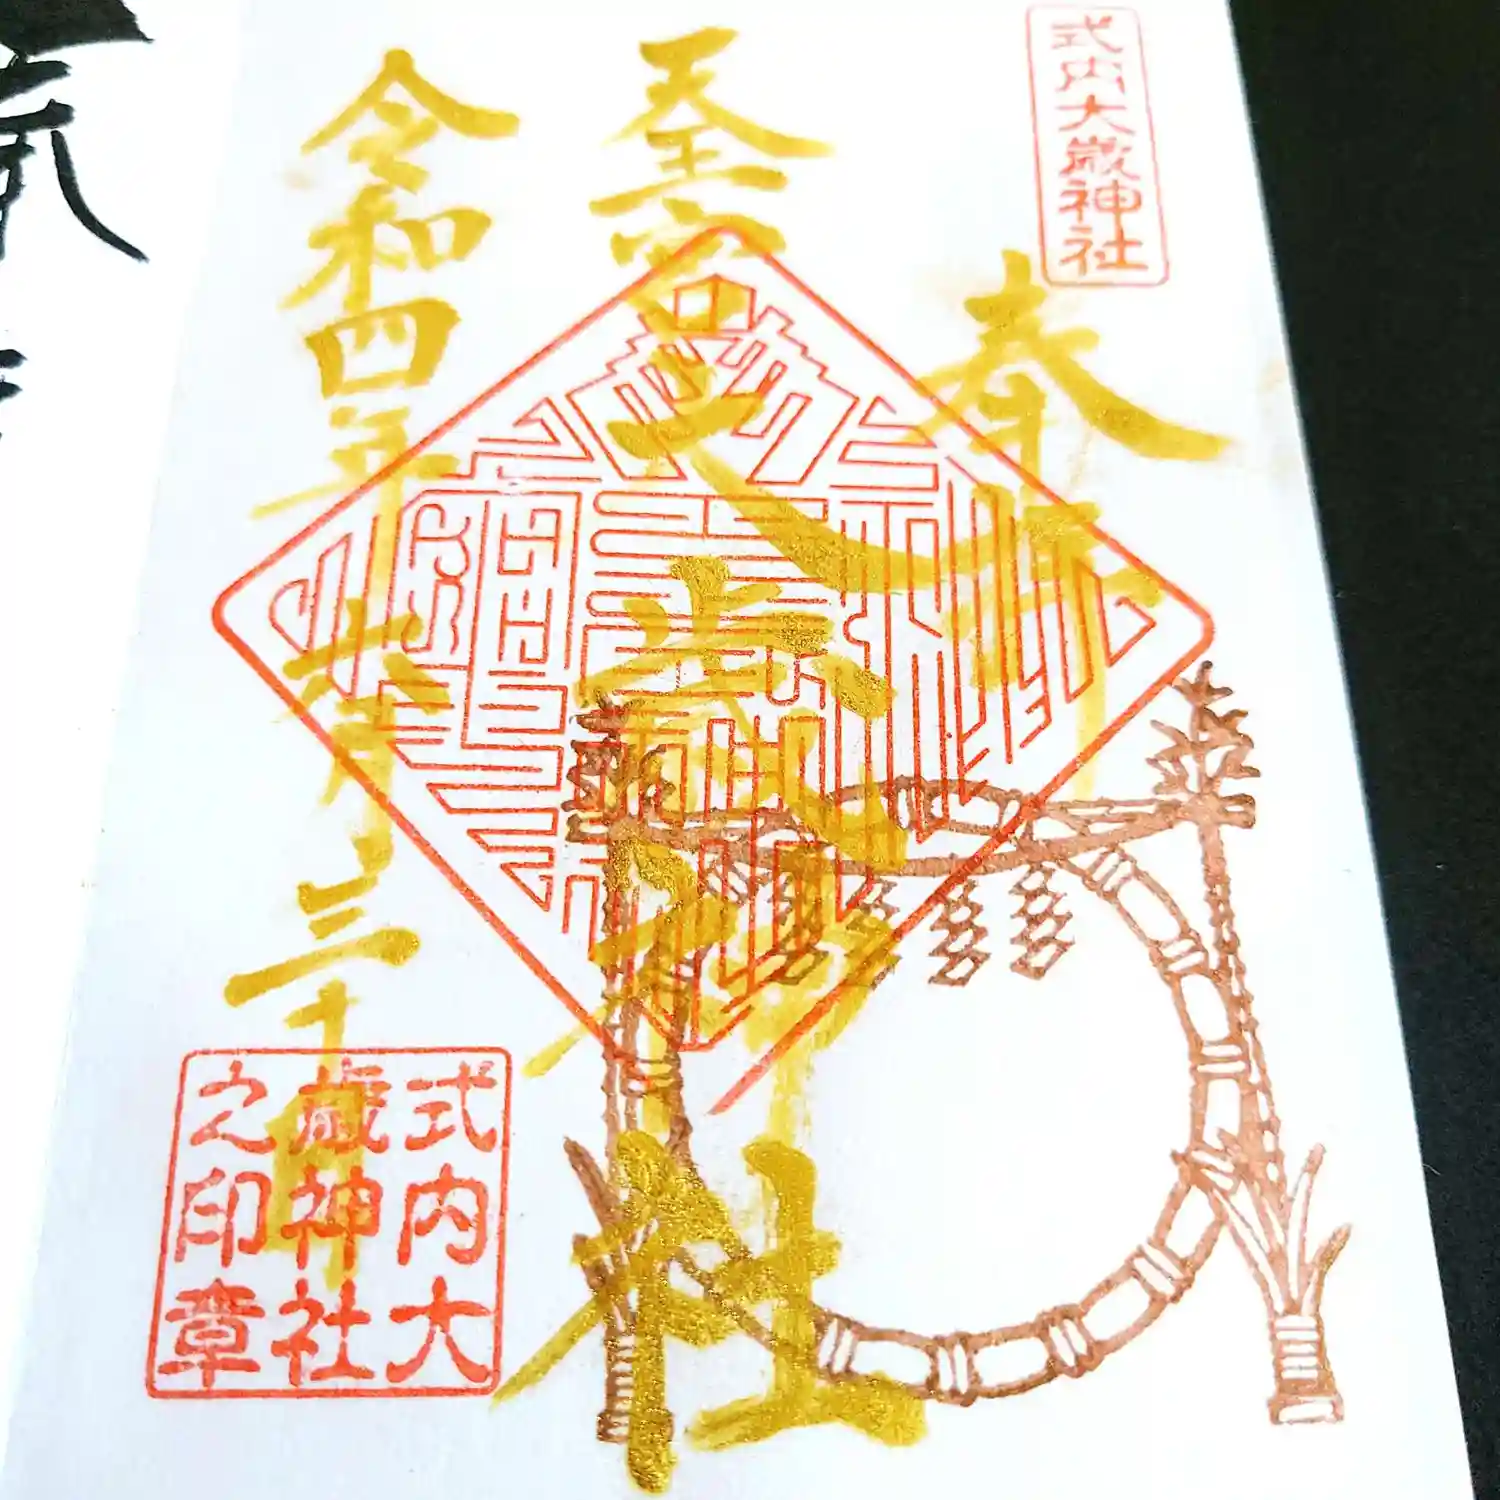 式内大歳神社
奉拝
天王宮大歳神社
令和四年六月三十日
式内大
歳神社
之印章